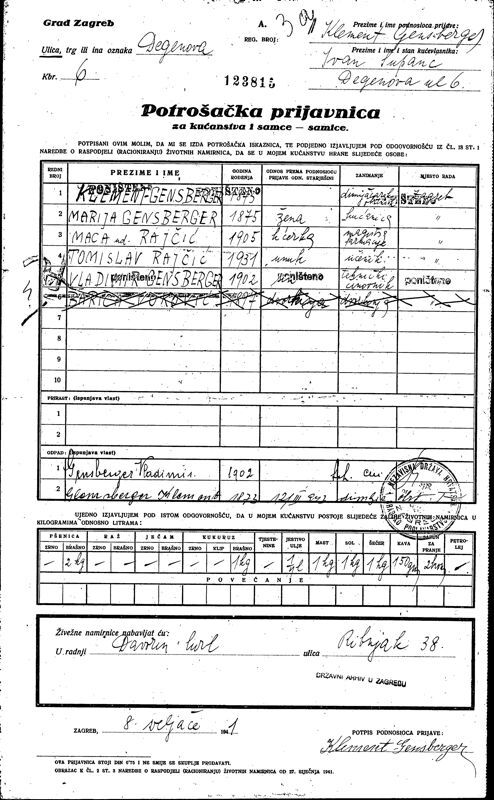 Grad Zagreb
A.
REG. BROJ:
Prezime i ime podnosioca prijave:
Klement Gensberger
Ulica, trg ili ina oznaka Degenova
Prezime i ime i stan kućevlasnika:
Ivan Supanc
Kbr. 6
123815
Degenova ul 6.
Potrošačka prijavnica
za kućanstva i samce — samice.
POTPISANI OVIM MOLIM, DA MI SE IZDA POTROŠAČKA ISKAZNICA, TE PODJEDNO IZJAVLJUJEM POD ODGOVORNOŠĆU IZ ČL. 18 ST. 1
NAREDBE O RASPODJELI (RACIONIRANJU) ŽIVOTNIH NAMIRNICA, DA SE U MOJEM KUĆANSTVU HRANE SLIJEDEĆE OSOBE:
REDNI BROJ
PREZIME I IME
GODINA ROĐENJA
ODNOS PREMA PODNOSIOCU PRIJAVE ODN. STARJEŠINI
ZANIMANJE
MJESTO RADA
1 KLEMENT GENSBERGER
2 MARIJA GENSBERGER 1875 žena kućanica "
3 MACA ud. RAJČIĆ 1905 kćerka "
4 TOMISLAV RAJČIĆ 1931 unuk učenik "
5 VLADIMIR GENSBERGER 1902 poništeno poništeno poništeno
6
7
8
9
10
PRIRAST: (ispunjava vlast)
1
2
ODPAD: (ispunjava vlast)
1 Gensberger Vladimir. 1902
2
NEZAVISNA DRŽAVA HRVATSKA
UJEDNO IZJAVLJUJEM POD ISTOM ODGOVORNOŠĆU, DA U MOJEM KUĆANSTVU POSTOJE SLIJEDEĆE ZALIHE ŽIVOTNIH NAMIRNICA U
KILOGRAMIMA ODNOSNO LITRAMA:
PŠENICA RAŽ JEČAM KUKURUZ TJESTENINE JESTIVO ULJE MAST SOL ŠEĆER KAVA SAPUN ZA PRANJE PETROLEJ
ZRNO BRAŠNO ZRNO BRAŠNO ZRNO BRAŠNO ZRNO KLIP BRAŠNO
— 2 kg — — — — — — 1 kg — 1 kg 1 kg 1 kg —
POVEĆANJE
Živežne namirnice nabavljat ću:
U radnji ulica Ribnjak 38.
DRŽAVNI ARHIV U ZAGREBU
ZAGREB, 8. veljače 1941
POTPIS PODNOSIOCA PRIJAVE:
Klement Gensberger
OVA PRIJAVNICA STOJI DIN 0'75 I NE SMIJE SE SKUPLJE PRODAVATI.
OBRAZAC K ČL. 2 ST. 2 NAREDBE O RASPODJELI (RACIONIRANJU) ŽIVOTNIH NAMIRNICA OD 27. SIJEČNJA 1941.